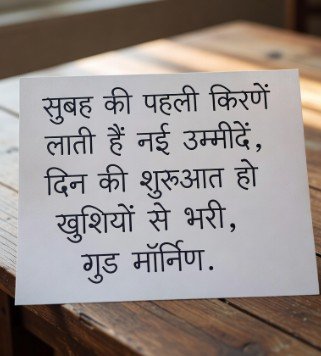 सुबह की पहली किरणें
लाती हैं नई उम्मीदें,
दिन की शुरुआत हो
खुशियों से भरी,
गुड मॉर्निण.